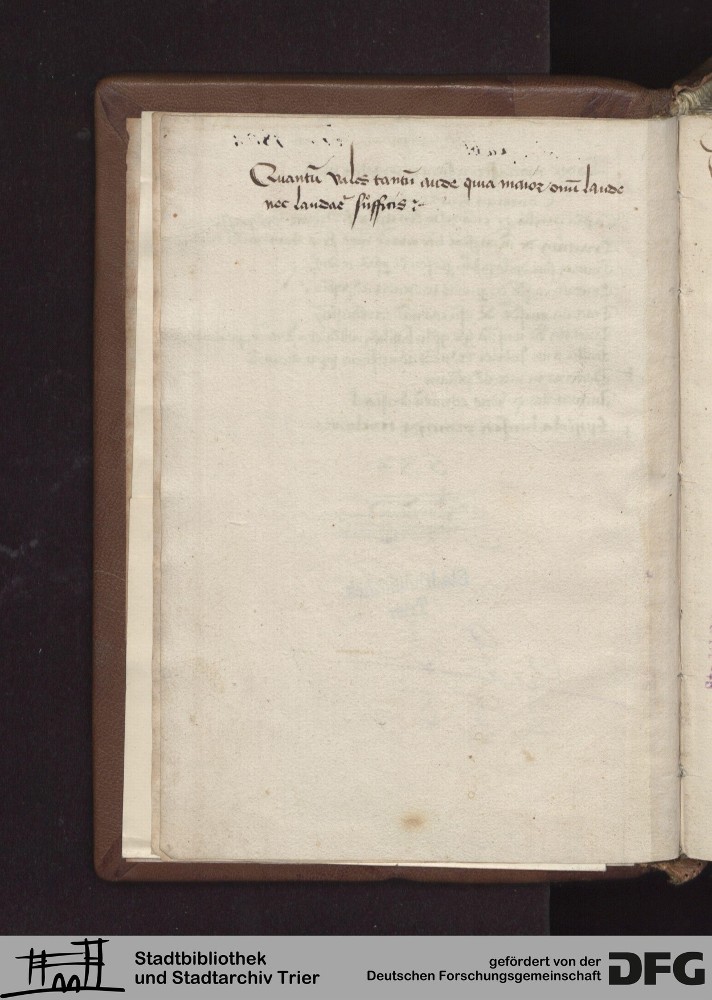 Quantū vales tantū aude quia maior om̄i laude
nec laudar̄ sufficis :~
Stadtbibliothek
und Stadtarchiv Trier
gefördert von der
Deutschen Forschungsgemeinschaft
DFG